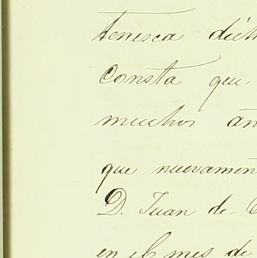 tenesca dich
Consta que
muchos án
que nuevamen
D. Juan de C
en el mes de